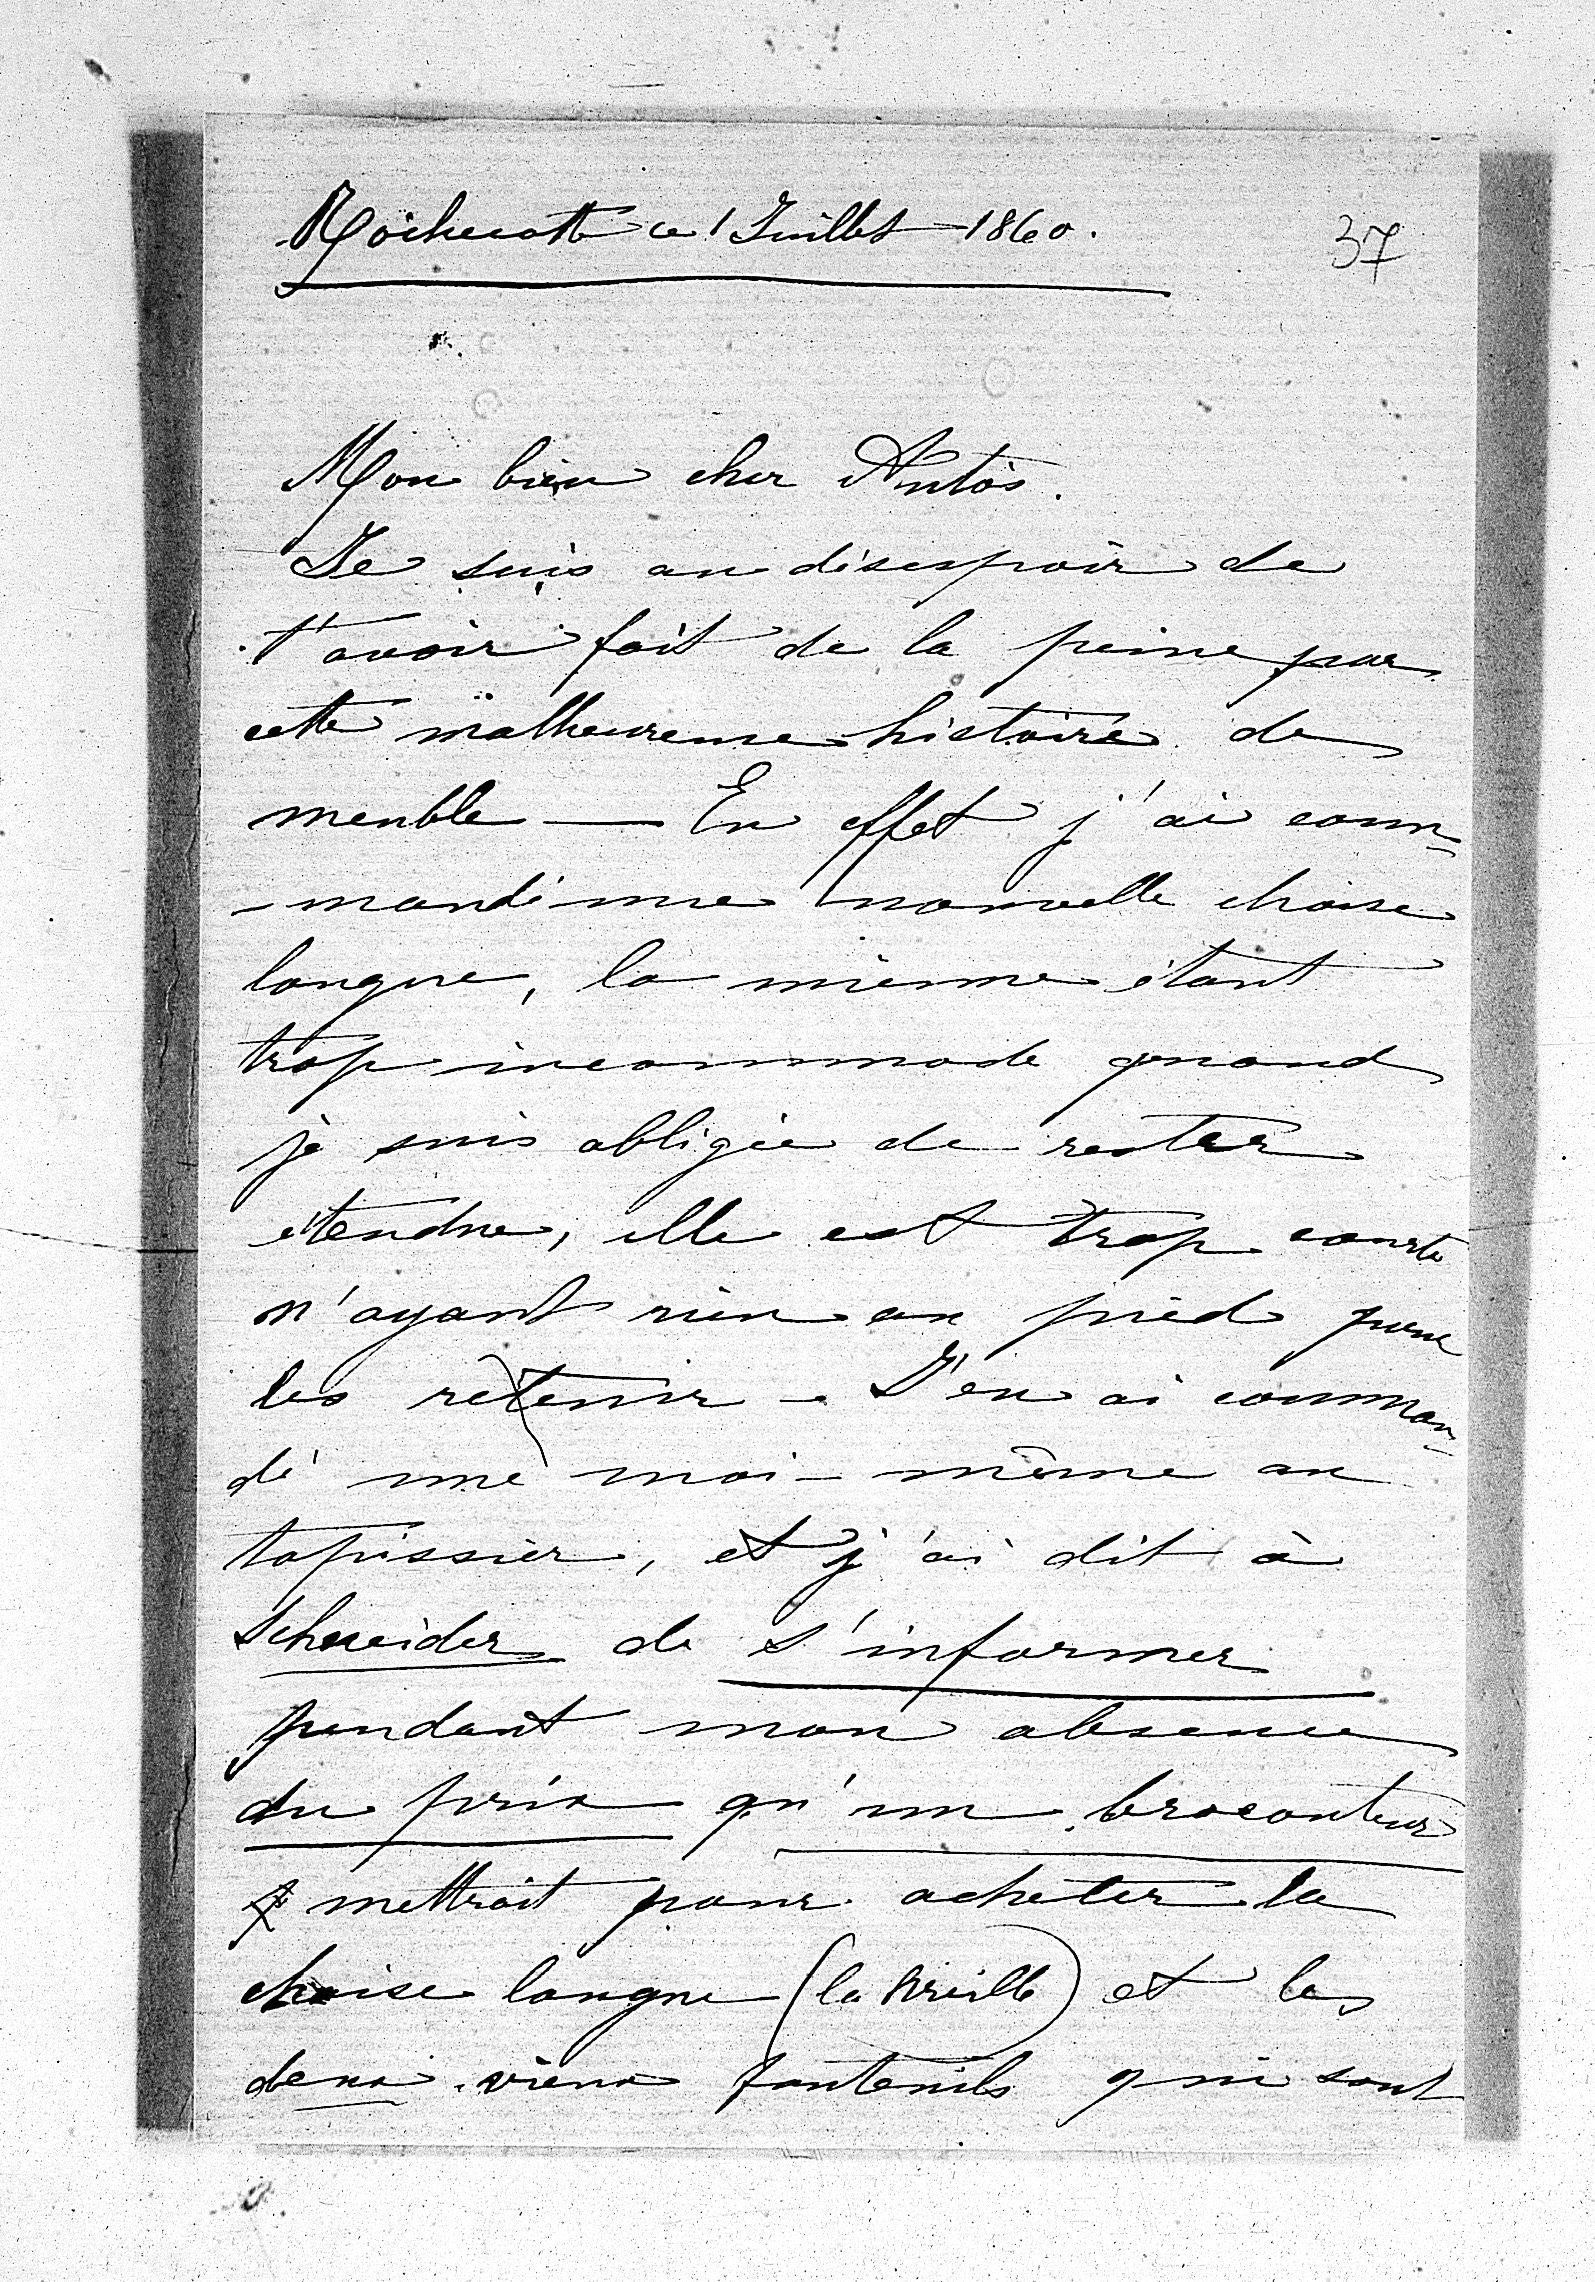 Rochecotte ce 1 Juillet 1860.
37
Mon bien cher Antos.
Je suis au désespoir de
t'avoir fait de la peine par
cette malheureuse histoire de
meuble — En effet j'ai com-
-mandé une nouvelle chaise
longue, la mienne étant
trop incommode quand
je suis obligée de rester
étendue, elle est trop courte
n'ayant rien au pied pour
les retenir - J'en ai comman-
dé une moi-même au
tapissier, et j'ai dit à
Schneider de s'informer
pendant mon absence
du prix qu'un brocanteur
mettrait pour acheter la
chaise longue (la vieille) et les
deux vieux fauteuils qui sont